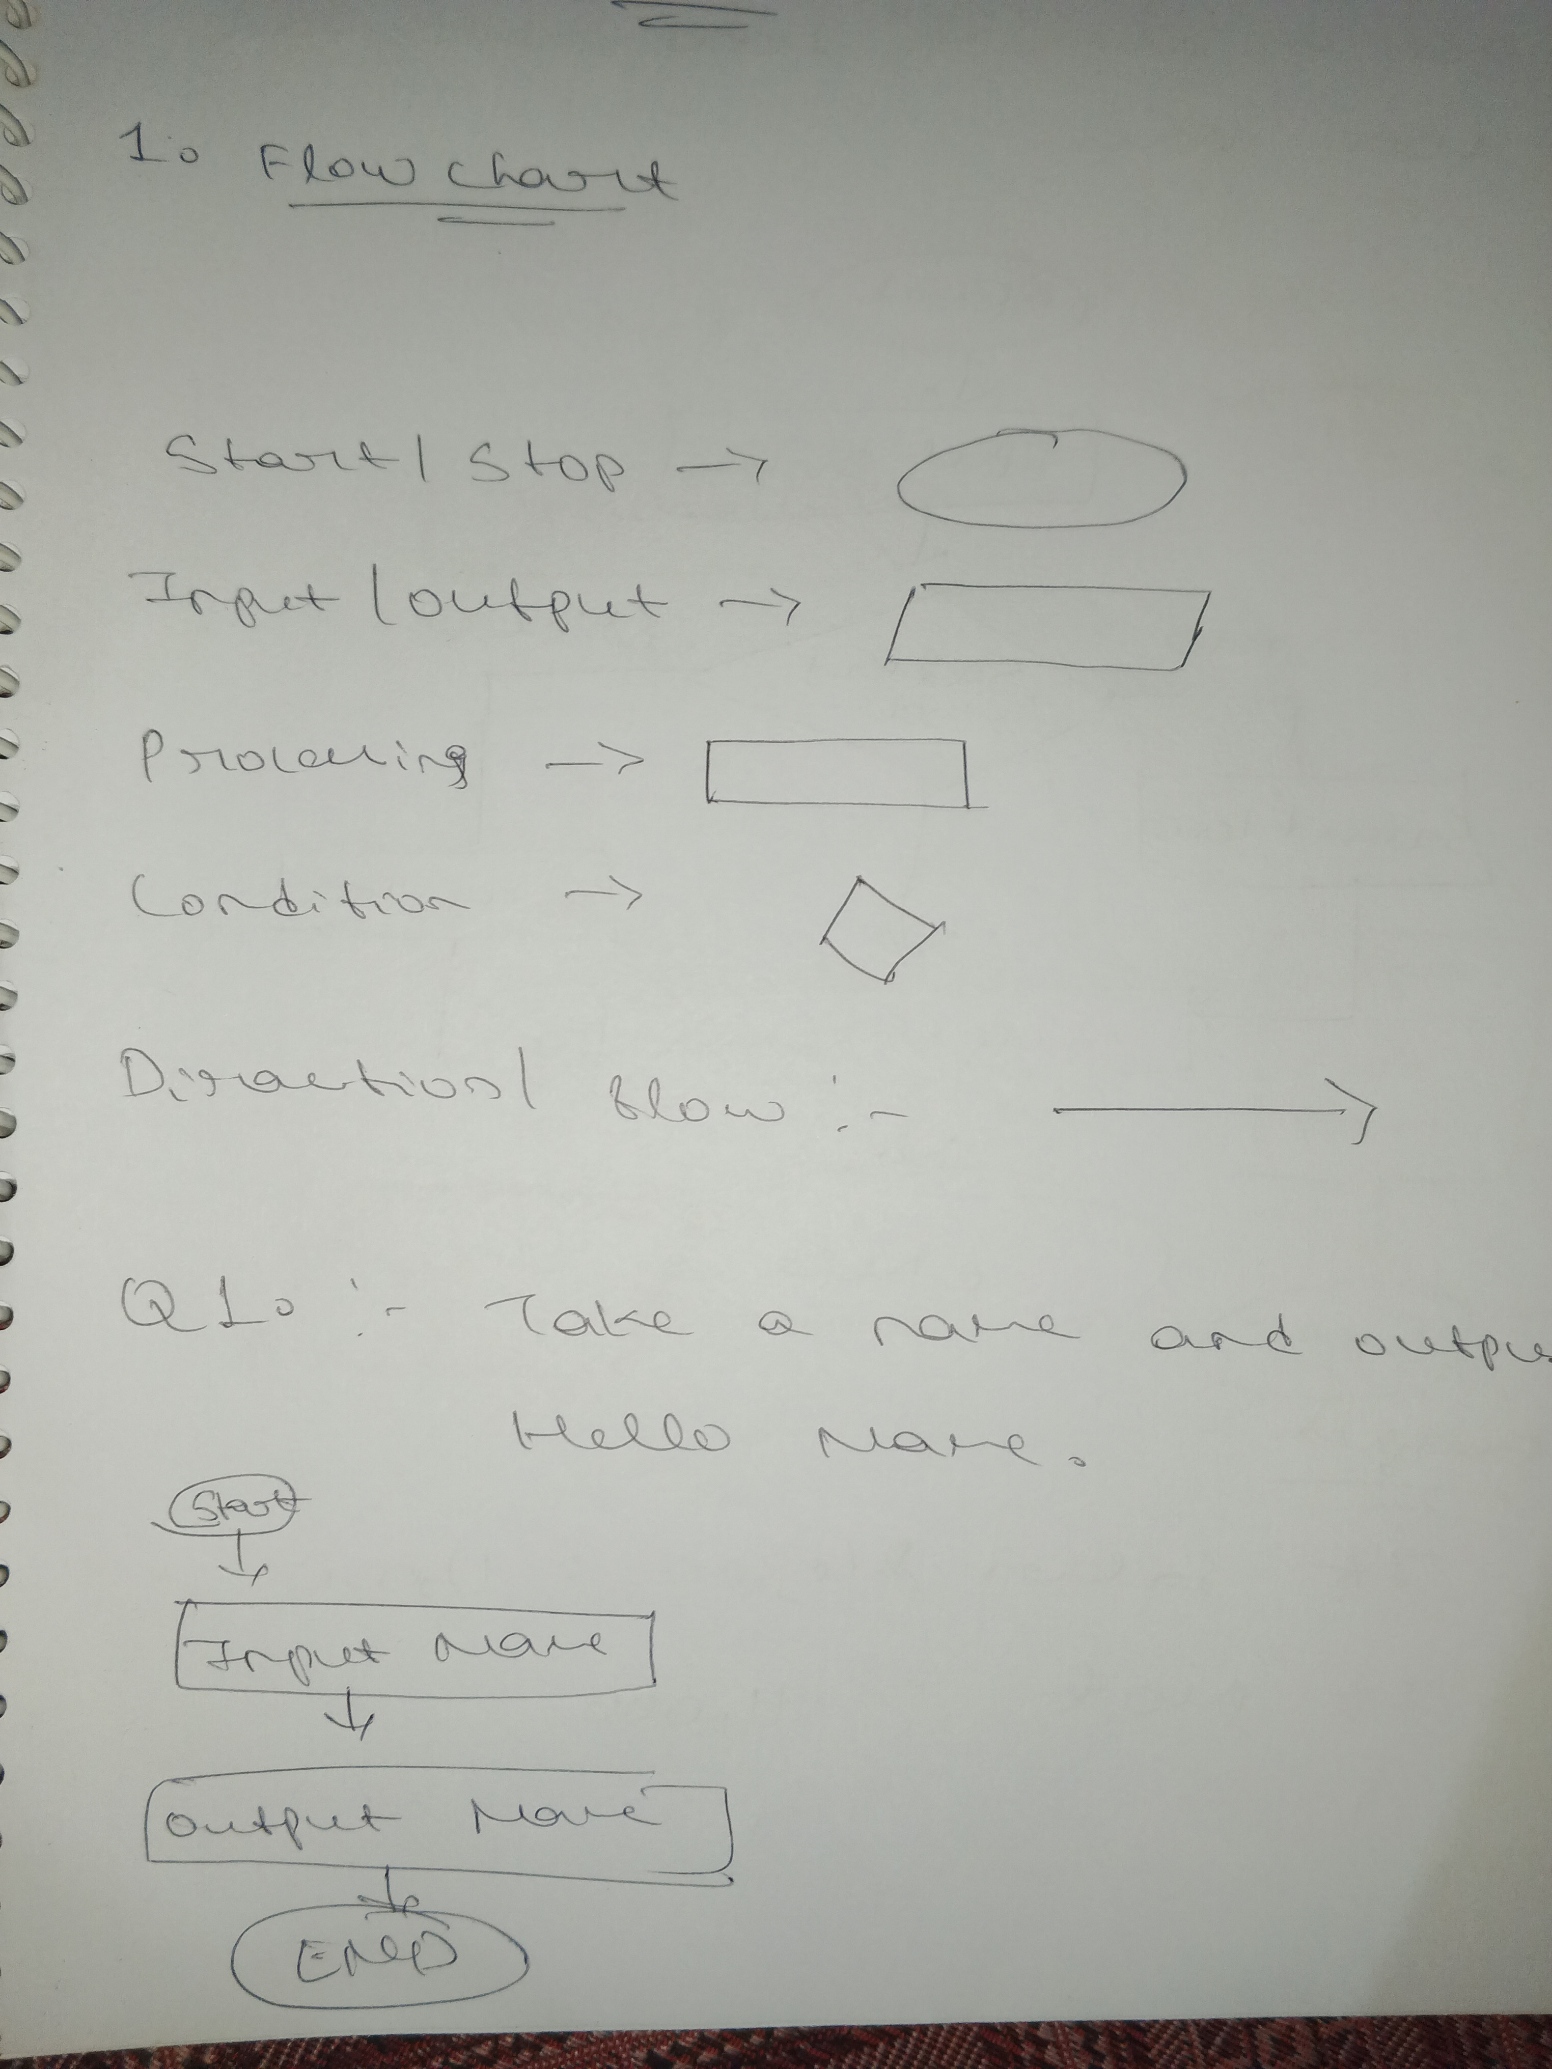 1. Flow chart
Start / Stop →
Input / output →
Processing →
Condition →
Direction / flow :-
Q1. :- Take a name and outpu
Hello Name.
Start
Input Name
Output Name
END